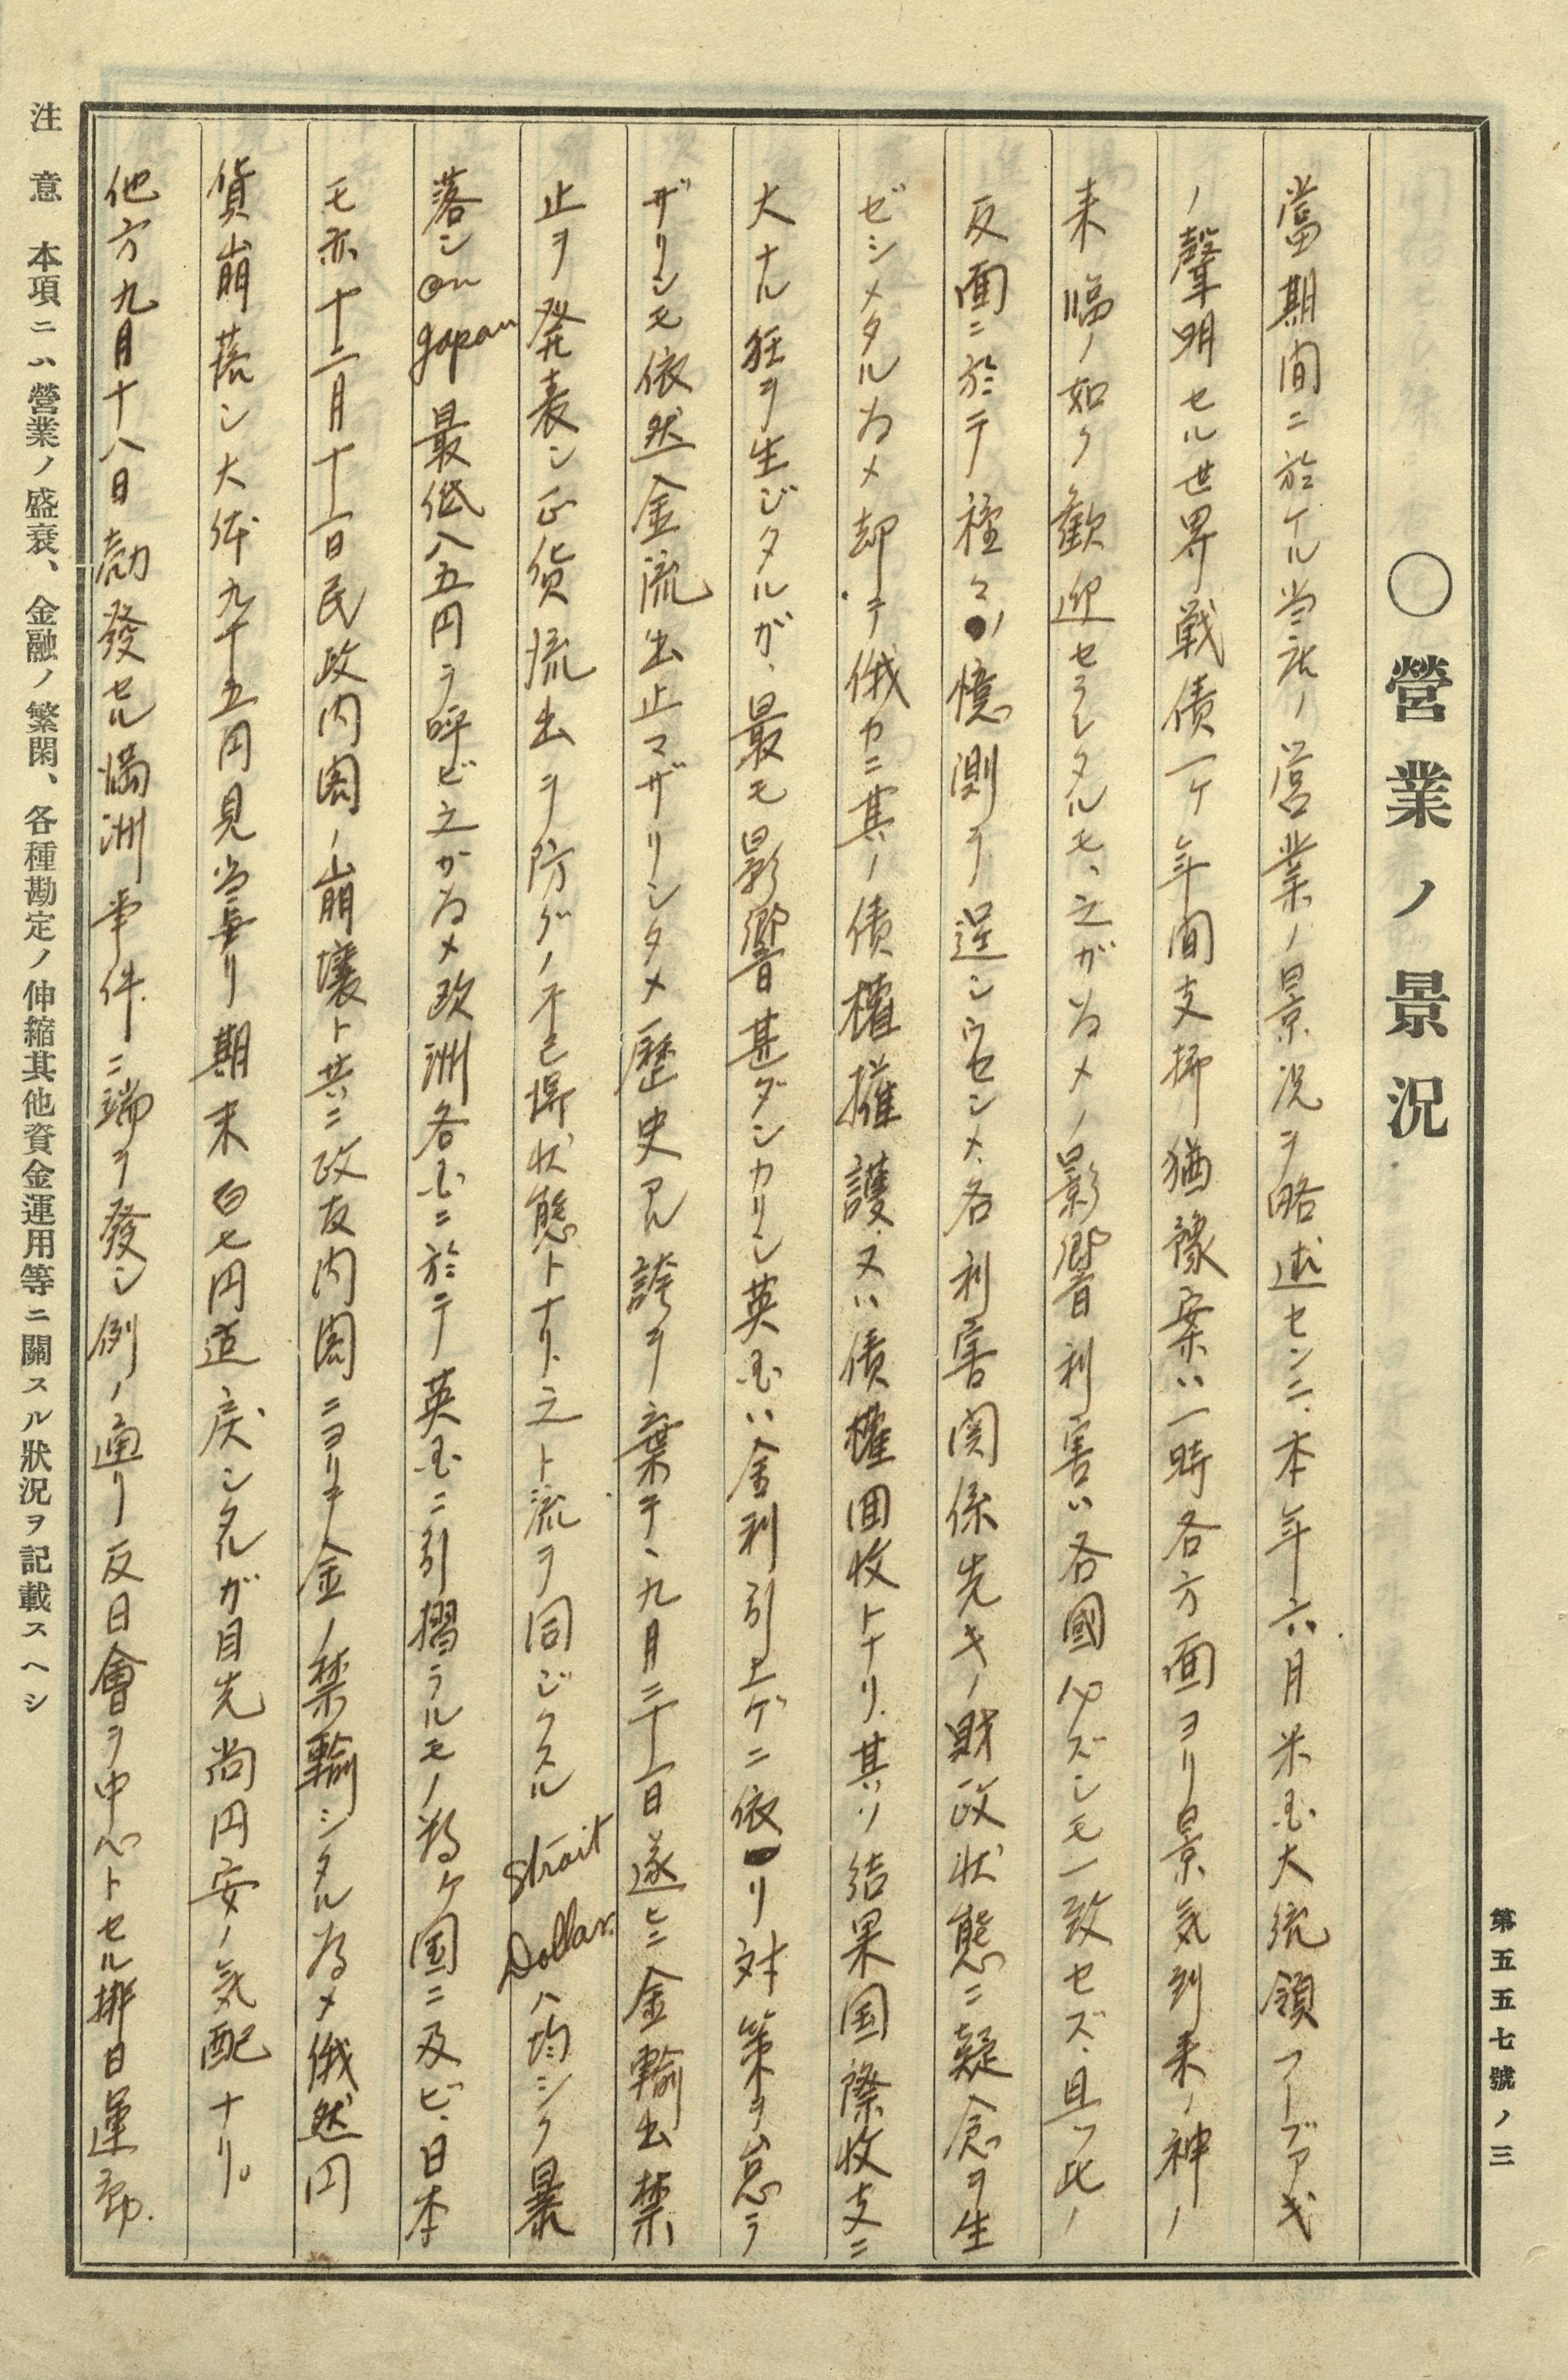 第五五七號ノ三
〇營業ノ景況
當期間ニ於ケル当店ノ営業ノ景況ヲ略述センニ、本年六月米国大統領フーヴァ氏
ノ聲明セル世界戦債一ケ年間支拂猶豫案ハ一時各方面ヨリ景気到来ノ神ノ
来臨ノ如ク歓迎セラレタルモ、之ガ為メノ影響利害ハ各國必ズシモ一致セズ、且ツ此ノ
反面ニ於テ種々ノ憶測ヲ逞シウセシメ、各利害関係先キノ財政状態ニ疑念ヲ生
ゼシメタル為メ却テ俄カニ其ノ債權擁護又ハ債權回收トナリ、其ノ結果国際收支ニ
大ナル狂ヲ生ジタルガ、最モ影響甚ダシカリシ英国ハ金利引上ゲニ依リ対策ヲ怠ラ
ザリシモ依然金流出止マザリシタメ歴史アル誇ヲ棄テ、九月二十一日遂ニ金輸出禁
止ヲ発表シ正貨流出ヲ防グノ不已得状態トナリ、之ト流ヲ同ジクスル Strait Dollar ハ均シク暴
落シ on Japan 最低八五円ヲ呼ビ之ガ為メ欧洲各国ニ於テ英国ニ引摺ラルモノ拾ケ国ニ及ビ、日本
モ亦十二月十一日民政内閣ノ崩壊ト共ニ政友内閣ニヨリテ金ノ禁輸シタル為メ俄然円
貨崩落シ大体九十五円見当ヨリ期末百七円迄戻シタルガ目先尚円安ノ気配ナリ。
他方九月十八日勃發セル満洲事件ニ端ヲ發シ例ノ通リ反日會ヲ中心トセル排日運動
注意 本項ニハ營業ノ盛衰、金融ノ繁閑、各種勘定ノ伸縮其他資金運用等ニ關スル狀況ヲ記載スヘシ